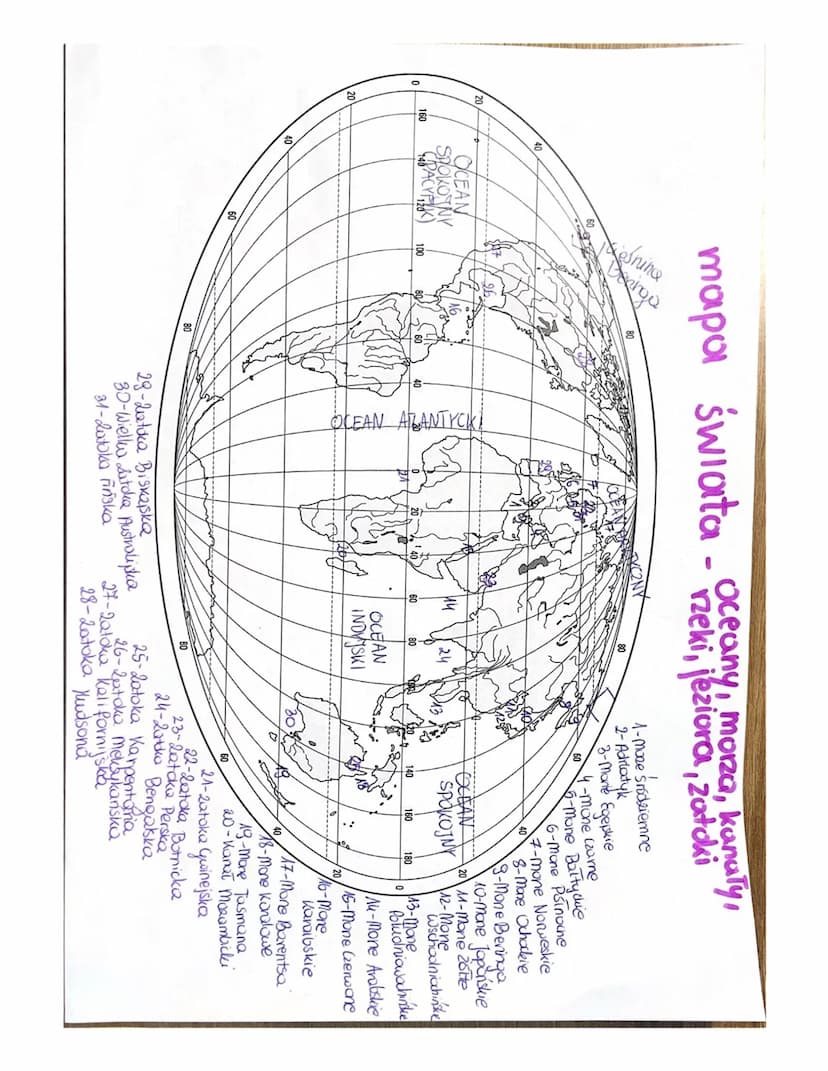 mapa świata - oceany, morza, kanały,
rzeki, jeziora, zatoki
Cieśnina
Beringa
OCEAN
SPOKOJNY
(PACYFIK)
OCEAN ATLANTYCKI
OCEAN ARKTYCZNY
OCEAN
INDYJSKI
OCEAN
SPOKOJNY
1-Morze Śródziemne
2-Adriatyk
3-Morze Egejskie
4-Morze Czarne
5-Morze Bałtyckie
6-Morze Północne
7-Morze Norweskie
8-Morze Ochockie
9-Morze Beringa
10-Morze Japońskie
11-Morze Żółte
12-Morze
Wschodniochińskie
13-Morze
Południowochińskie
14-Morze Arabskie
15-Morze Czerwone
16-Morze
Karaibskie
17-Morze Barentsa
18-Morze Koralowe
19-Morze Tasmana
20-Kanał Mozambicki
21-Zatoka Gwinejska
22-Zatoka Botnicka
23-Zatoka Perska
24-Zatoka
Bengalska
25-Zatoka Karpentaria
26-Zatoka Meksykańska
27-Zatoka Kalifornijska
28-Zatoka Hudsona
29-Zatoka Biskajska
30-Wielka Zatoka Australijska
31-Zatoka Fińska